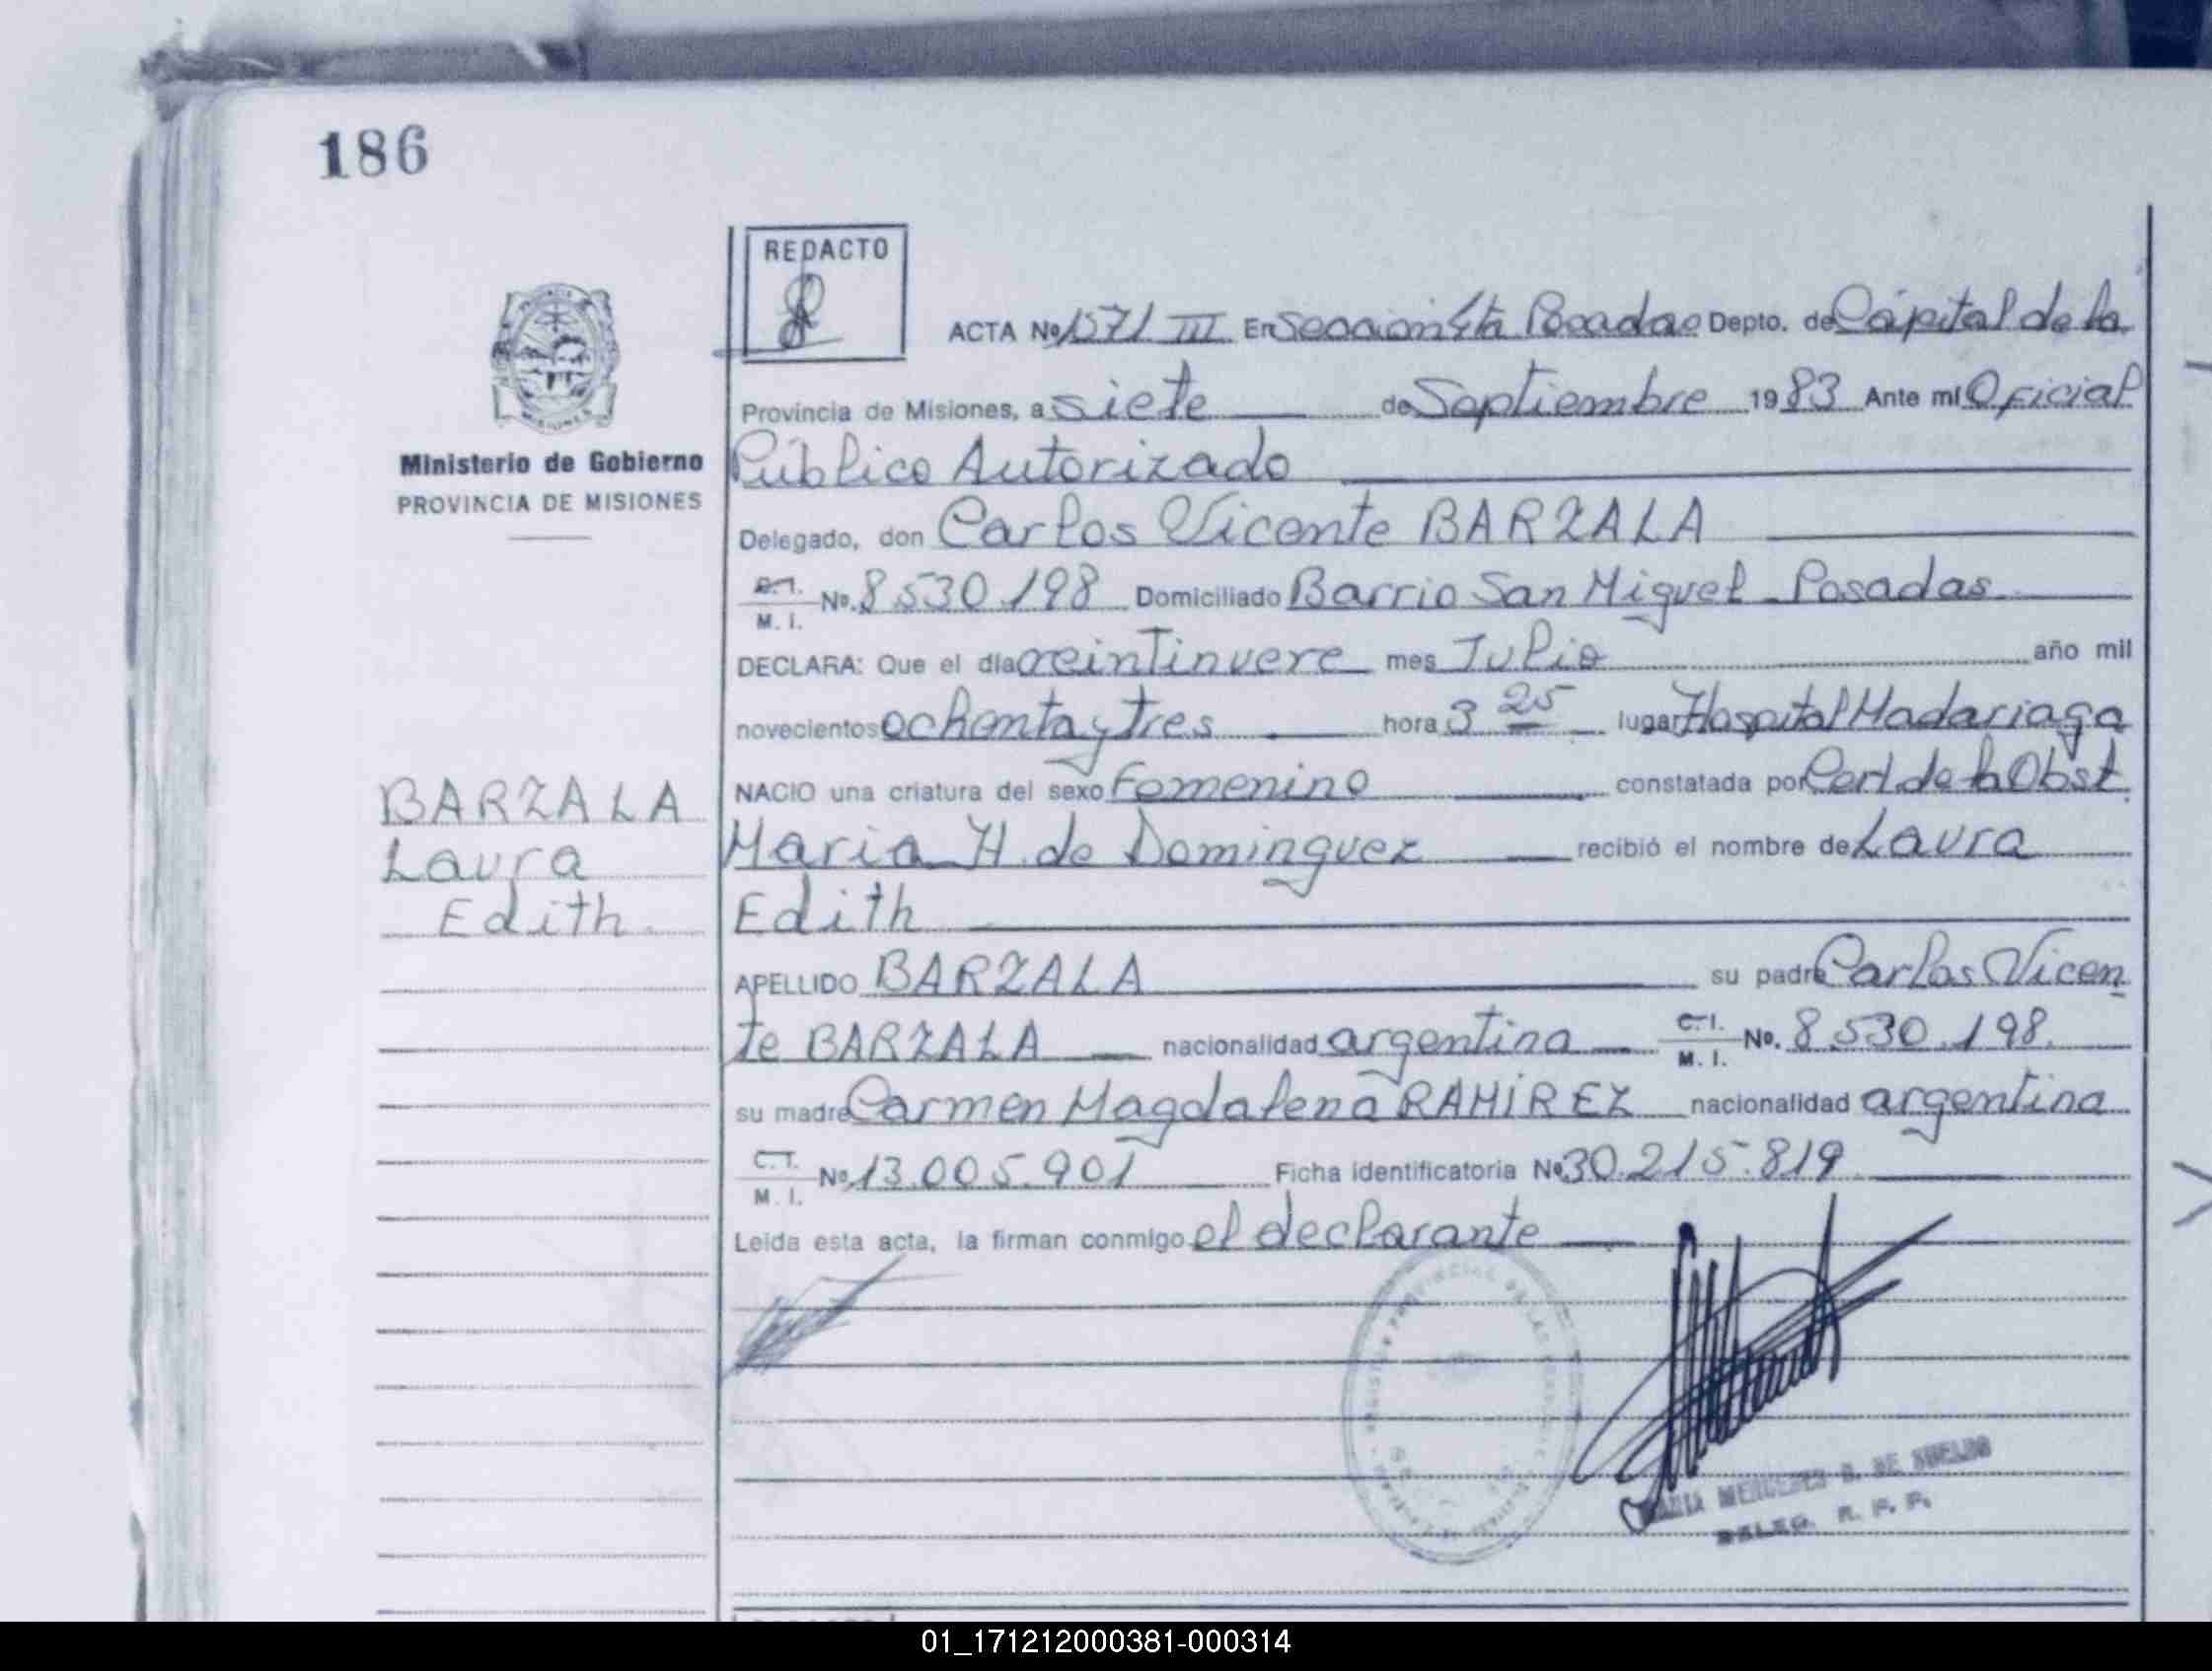 186
REDACTO
ACTA Nº 1571 III En Sección 4ta Posadas Depto. de Capital de la
Provincia de Misiones, a siete de Septiembre 1983 Ante mí Oficial
Ministerio de Gobierno
PROVINCIA DE MISIONES
Público Autorizado
Delegado, don Carlos Vicente BARZALA
C.I. M. I. Nº. 8.530.198 Domiciliado Barrio San Miguel - Posadas
DECLARA: Que el día veintinueve mes Julio año mil
novecientos ochenta y tres hora 3 25 lugar Hospital Madariaga
NACIO una criatura del sexo Femenino constatada por Cert. de la Obst.
BARZALA
Laura
Edith
Maria H. de Dominguez recibió el nombre de Laura
Edith
APELLIDO BARZALA su padre Carlos Vicen
te BARZALA nacionalidad argentina C.I. M. I. Nº. 8.530.198.
su madre Carmen Magdalena RAMIREZ nacionalidad argentina
C.I. M. I. Nº 13.005.901 Ficha identificatoria Nº 30.215.819
Leída esta acta, la firman conmigo el declarante
MARIA MERCEDES DE
DELEG. R. P. P.
01_171212000381-000314